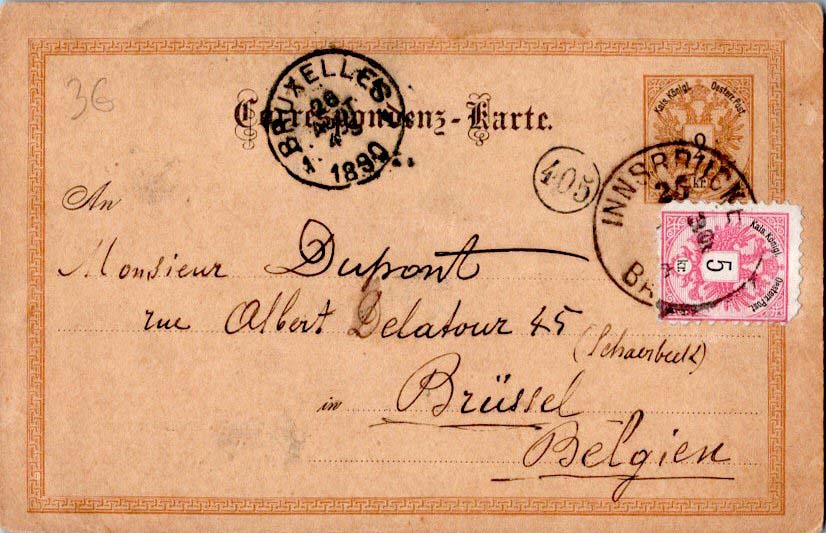 36
BRUXELLES
26
AOUT
4
1890
Correspondenz-Karte.
Kais. Königl. Oesterr. Post.
kr.
405
INNSBRUCK
25
90
Kais. Königl. Oesterr. Post.
5
kr.
An
Monsieur Dupont
rue Albert Delatour 45
(Schaerbeek)
in Brüssel
Belgien